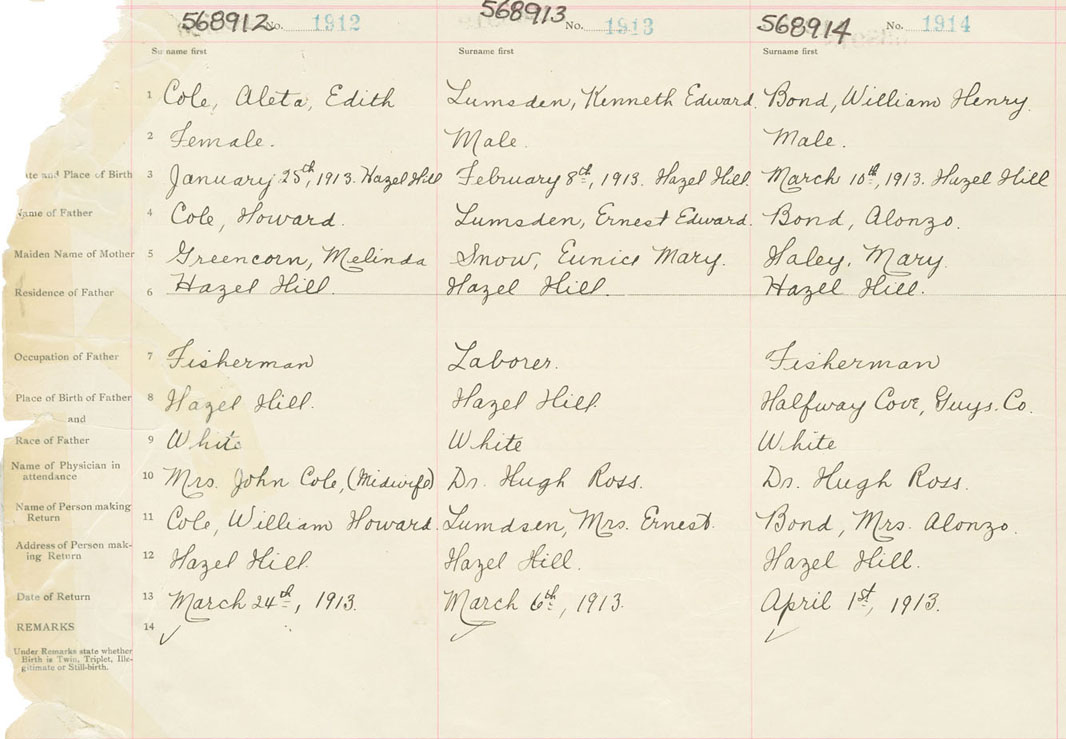 568912 No. 1912 568913 No. 1913 568914 No. 1914
Surname first Surname first Surname first
1 Cole, Aleta, Edith Lumsden, Kenneth Edward. Bond, William Henry.
2 Female. Male. Male.
te and Place of Birth 3 January 25th, 1913. Hazel Hill February 8th, 1913. Hazel Hill. March 10th, 1913. Hazel Hill
Name of Father 4 Cole, Howard. Lumsden, Ernest Edward. Bond, Alonzo.
Maiden Name of Mother 5 Greencorn, Melinda Snow, Eunice Mary. Haley, Mary.
Residence of Father 6 Hazel Hill. Hazel Hill. Hazel Hill.
Occupation of Father 7 Fisherman Laborer. Fisherman
Place of Birth of Father 8 Hazel Hill. Hazel Hill. Halfway Cove, Guys. Co.
and
Race of Father 9 White White White
Name of Physician in
attendance 10 Mrs. John Cole, (Midwife) Dr. Hugh Ross. Dr. Hugh Ross.
Name of Person making
Return 11 Cole, William Howard. Lumdsen, Mrs. Ernest. Bond, Mrs. Alonzo.
Address of Person mak-
ing Return 12 Hazel Hill. Hazel Hill. Hazel Hill.
Date of Return 13 March 24th, 1913. March 6th, 1913. April 1st, 1913.
REMARKS 14
Under Remarks state whether
Birth is Twin, Triplet, Ille-
gitimate or Still-birth.